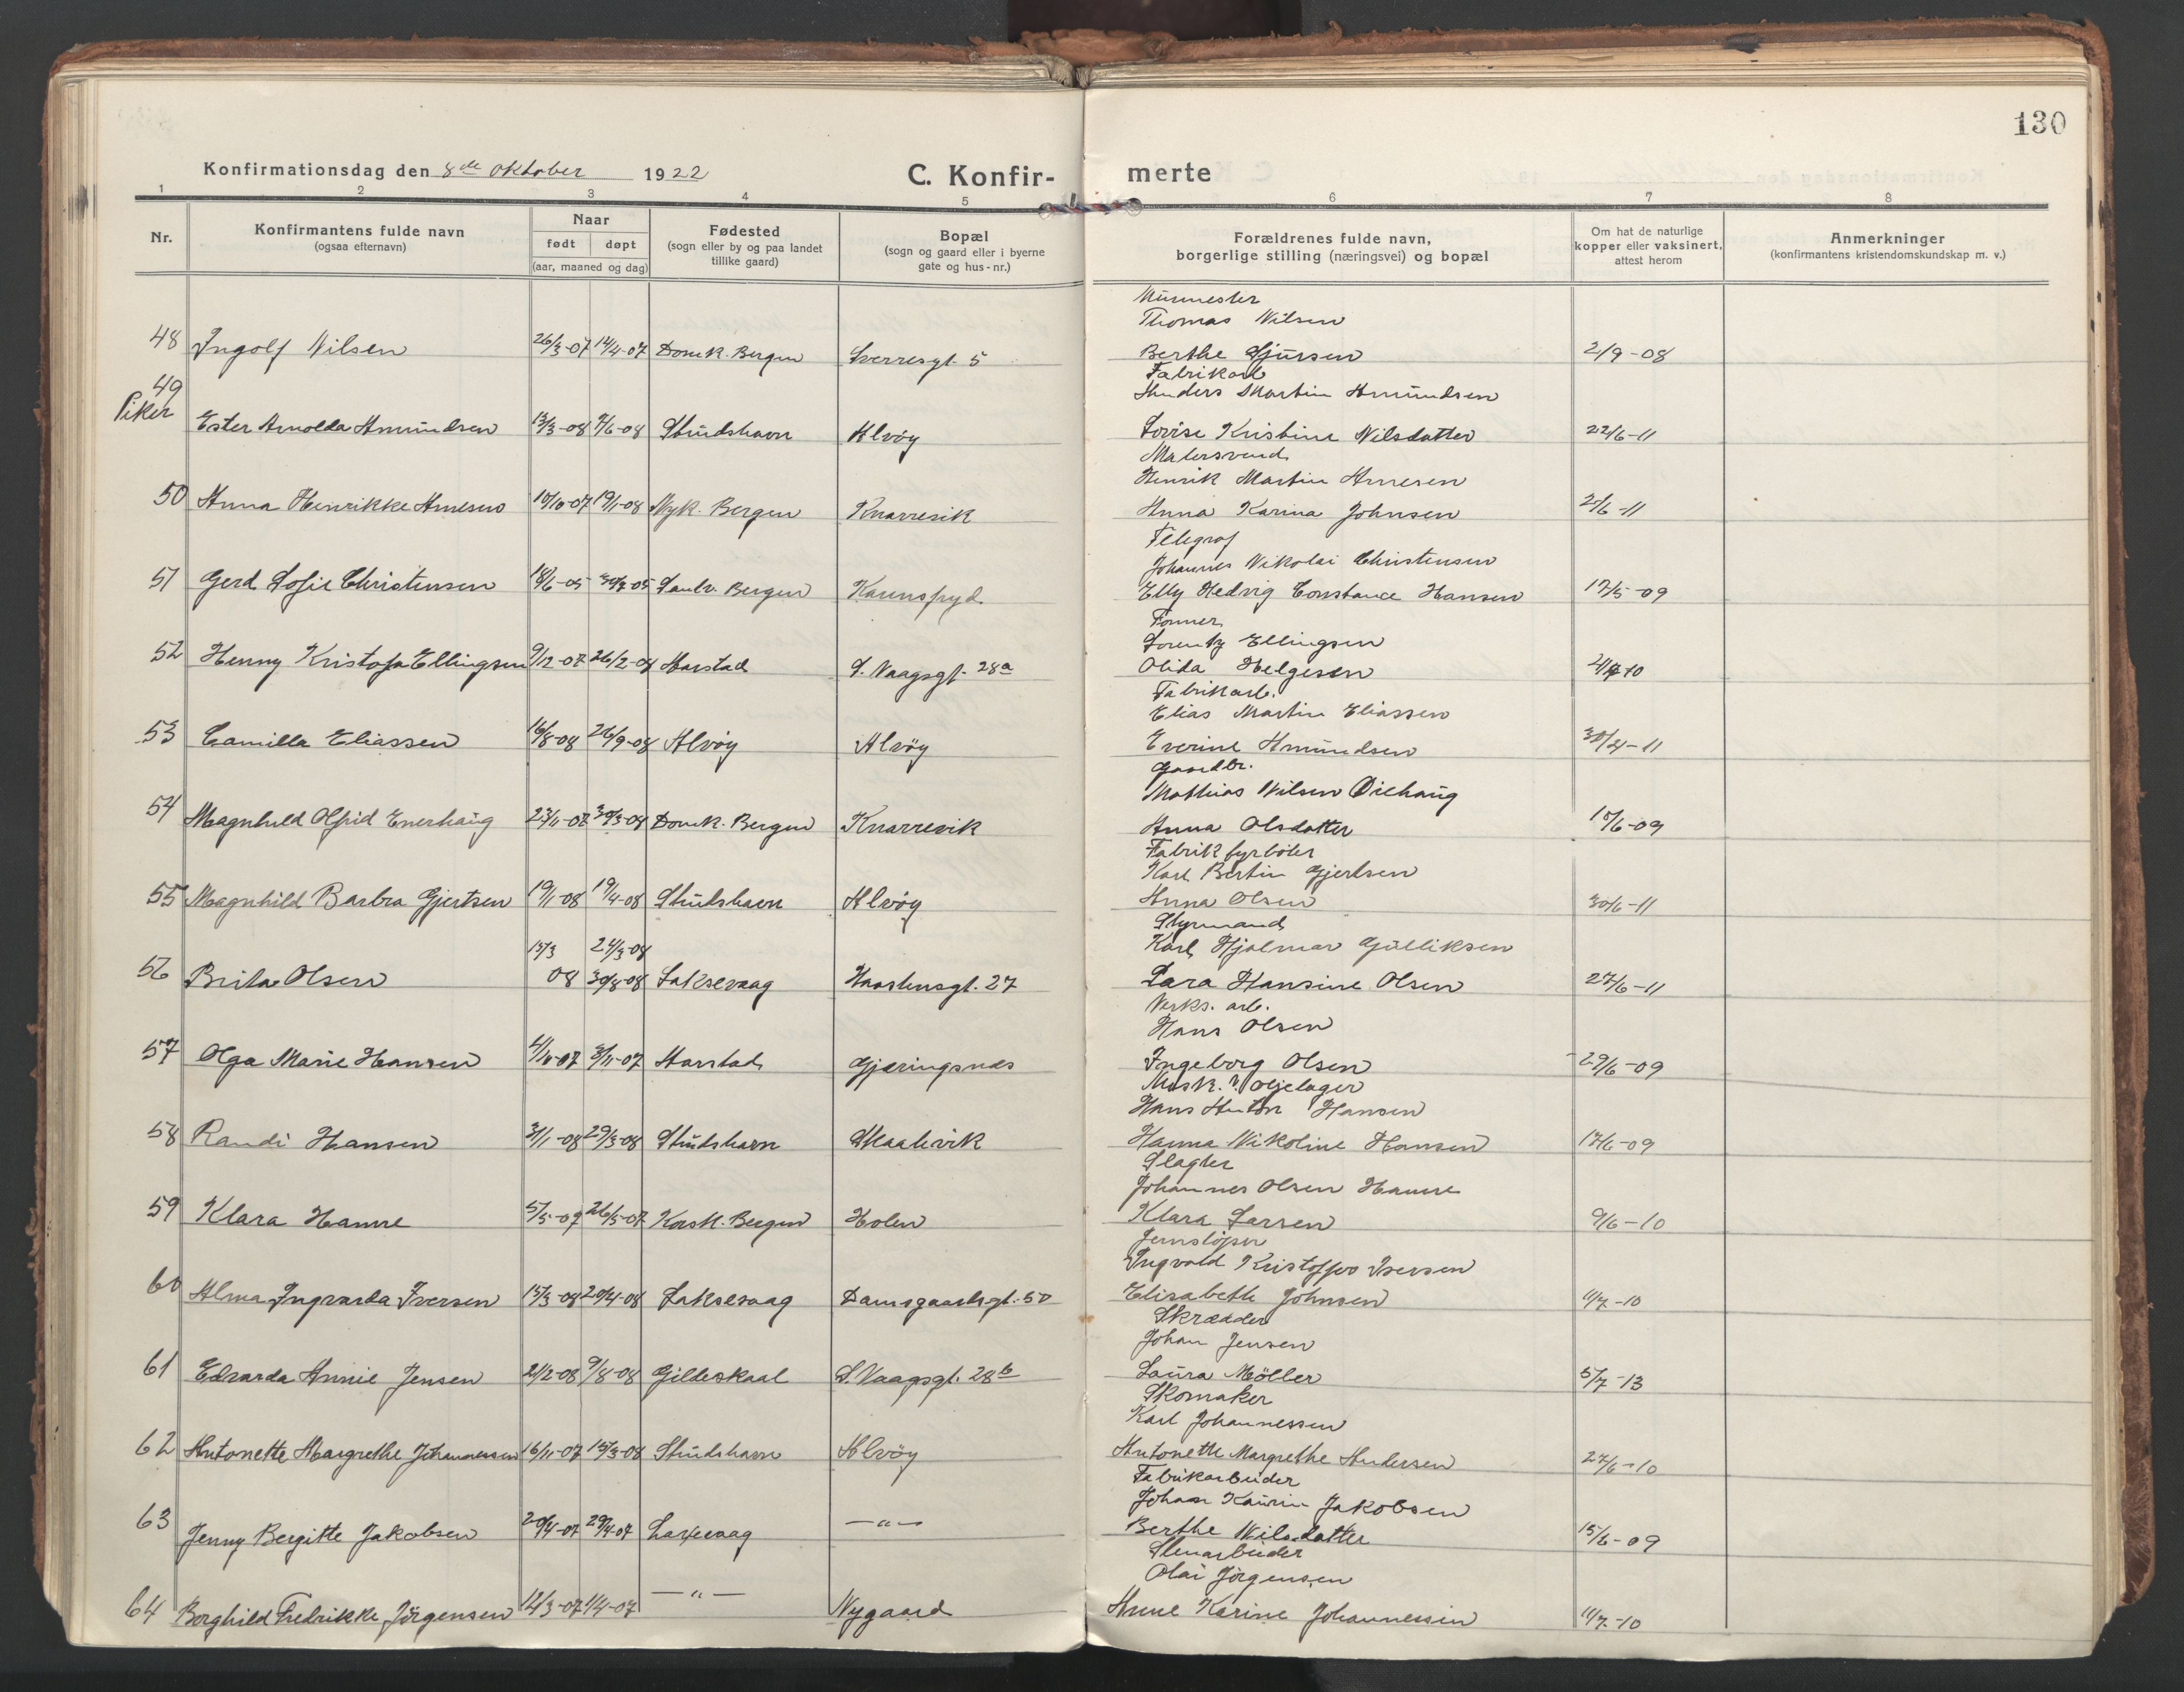 130
Konfirmationsdag den 8de Oktober 1922 C. Konfir- merte
1 2 3 4 5 6 7 8
Nr.
Konfirmantens fulde navn
(ogsaa efternavn)
Naar
født døpt
(aar, maaned og dag)
Fødested
(sogn eller by og paa landet
tillike gaard)
Bopæl
(sogn og gaard eller i byerne
gate og hus-nr.)
Forældrenes fulde navn,
borgerlige stilling (næringsvei) og bopæl
Om hat de naturlige
kopper eller vaksinert,
attest herom
Anmerkninger
(konfirmantens kristendomskundskap m. v.)
Murmester
Thomas Nilsen
48 Ingolf Nilsen 26/3-07 14/4-07 Domk. Bergen Sverresgt. 5 Berthe Sjursen 2/9-08
49
Piker
Fabrikarb
Anders Martin Amundsen
Ester Arnolda Amundsen 13/3-08 7/6-08 Studshavn Alvøy Lovise Kristine Nilsdatter 22/6-11
Malersvend
Henrik Martin Arnesen
50 Anna Henrikke Arnesen 10/10-07 19/1-08 Nyk. Bergen Knarrevik Anna Karina Johnsen 21/6-11
Telegraf
Johannes Nikolai Christensen
51 Gerd Sofie Christensen 18/6-05 30/7-05 Sandv. Bergen Elly Hedvig Constance Hansen 17/5-09
Former
Lorentz Ellingsen
52 Henny Kristofa Ellingsen 9/12-07 26/2-08 Harstad S. Vaagsgt. 28a Olida Helgesen
Fabrikarb.
Elias Martin Eliassen
53 Camilla Eliassen 16/8-08 26/9-08 Alvøy Alvøy Everine Amundsen 30/4-11
Gaardbr.
Mathias Nilsen
54 Magnhild Enerhaug 23/11-07 30/3-08 Domk. Bergen Knarrevik Anna Olsdatter 10/6-09
Fabrikfyrbøter
Karl Bertin Gjertsen
55 Magnhild Barbra Gjertsen 19/1-08 19/4-08 Studshavn Alvøy Anna Olsen 30/6-11
Styrmand
15/3 24/3-08 Karl Hjalmar Gulliksen
56 Brita Olsen 08 30/8-08 Laksevaag 27 Lara Hansine Olsen 27/6-11
Verks. arb.
Hans Olsen
57 Olga Marie Hansen 4/10-07 3/11-07 Harstad Gjæringsnes Ingeborg Olsen 29/6-09
Mask. v. oljelager
Hans Anton Hansen
58 Randi Hansen 31/1-08 29/3-08 Studshavn Skaalevik Hanna Nikoline Hansen 17/6-09
Slagter
Johannes Olsen Hamre
59 Klara Hamre 5/5-07 26/5-07 Korsk. Bergen Holen Klara Larsen 9/6-10
Jernstøper
Ingvald Kristoffer Iversen
60 Alma Ingvarda Iversen 15/3-08 20/4-08 Laksevaag Damsgaardsgt. 50 Elisabeth Johnsen 11/7-10
Skrædder
Johan Jensen
61 Edvarda Annie Jensen 21/2-08 9/8-08 Gildeskaal S. Vaagsgt. 28b Laura Möller 5/7-13
Skomaker
Karl Johannessen
62 Antonette Margrethe Johannessen 16/11-07 15/3-08 Studshavn Alvøy Antonette Margrethe Andersen 27/6-10
Fabrikarbeider
Johan Kaurin Jakobsen
63 Jenny Bergitte Jakobsen 20/4-07 29/4-07 Laxevaag —"— Berthe Nilsdatter 15/6-09
Stenarbeider
Olai Jörgensen
64 Borghild Fredrikke Jörgensen 12/3-07 1/4-07 —"— Nygaard Anne Karine Johannessen 11/7-10